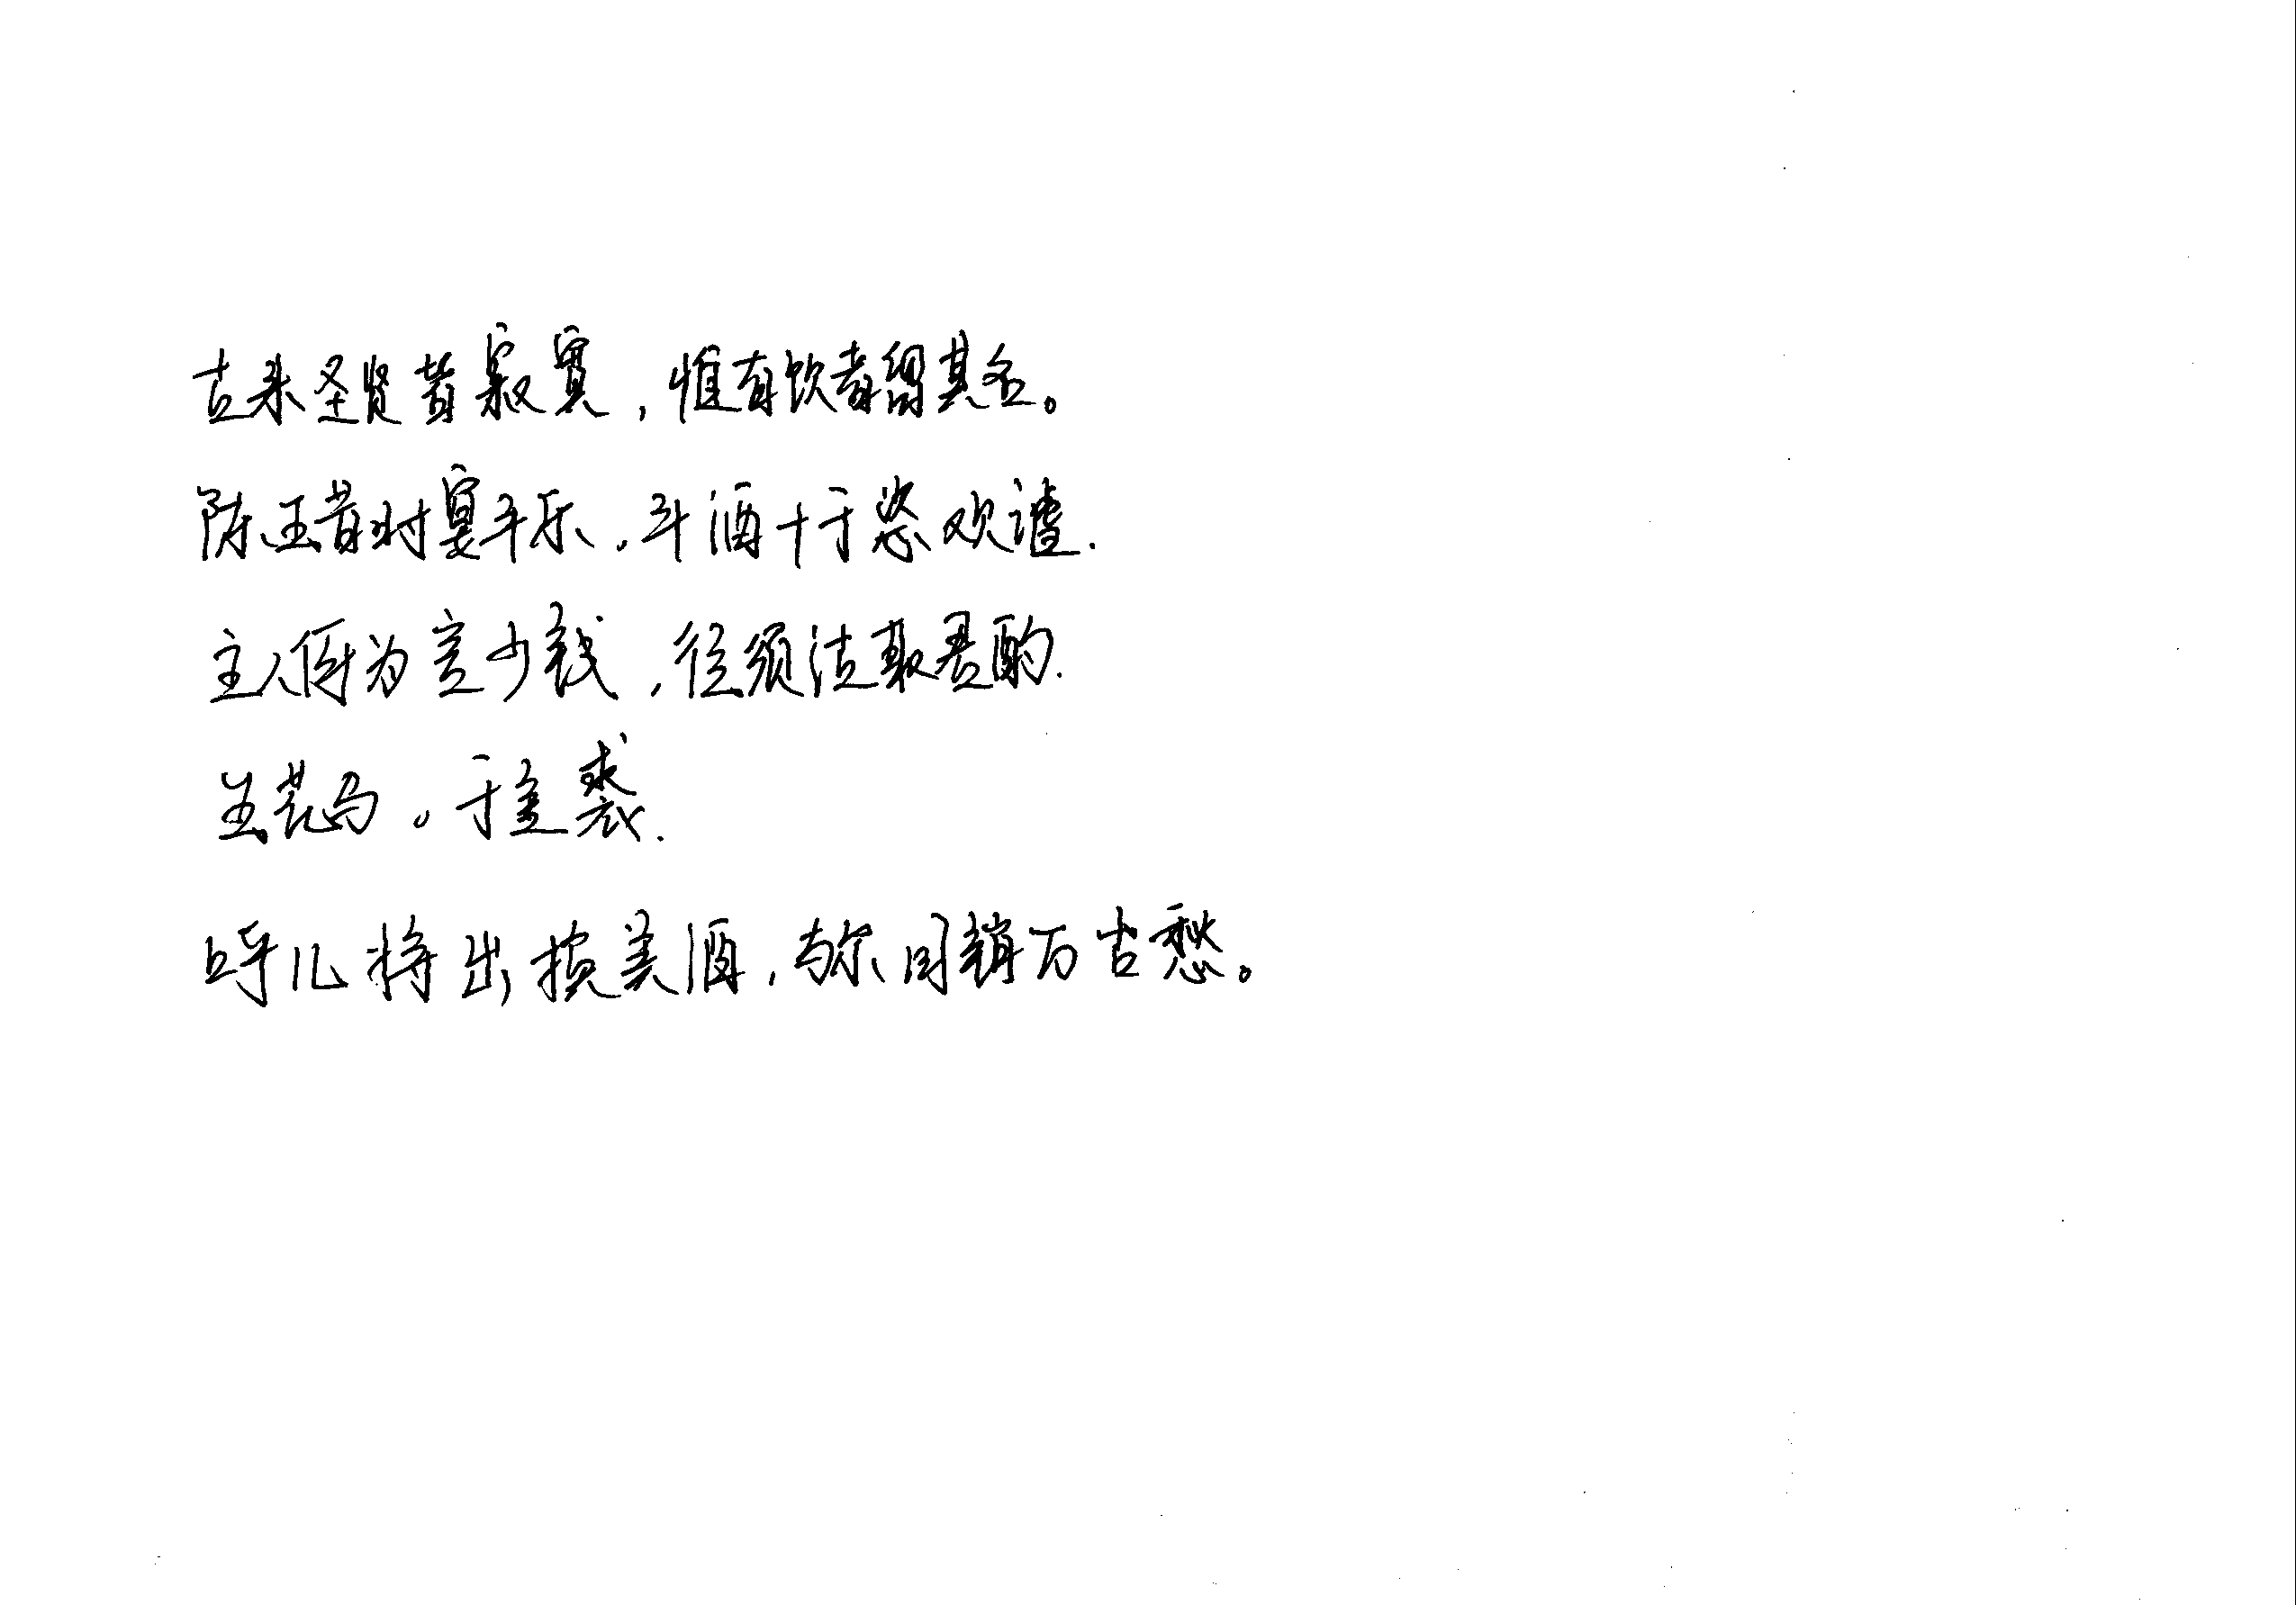 古来圣贤皆寂寞，惟有饮者留其名。
陈王昔时宴平乐，斗酒十千恣欢谑.
主人何为言少钱，径须沽取君酌.
五花马。千金裘.
呼儿将出换美酒，与尔同销万古愁。